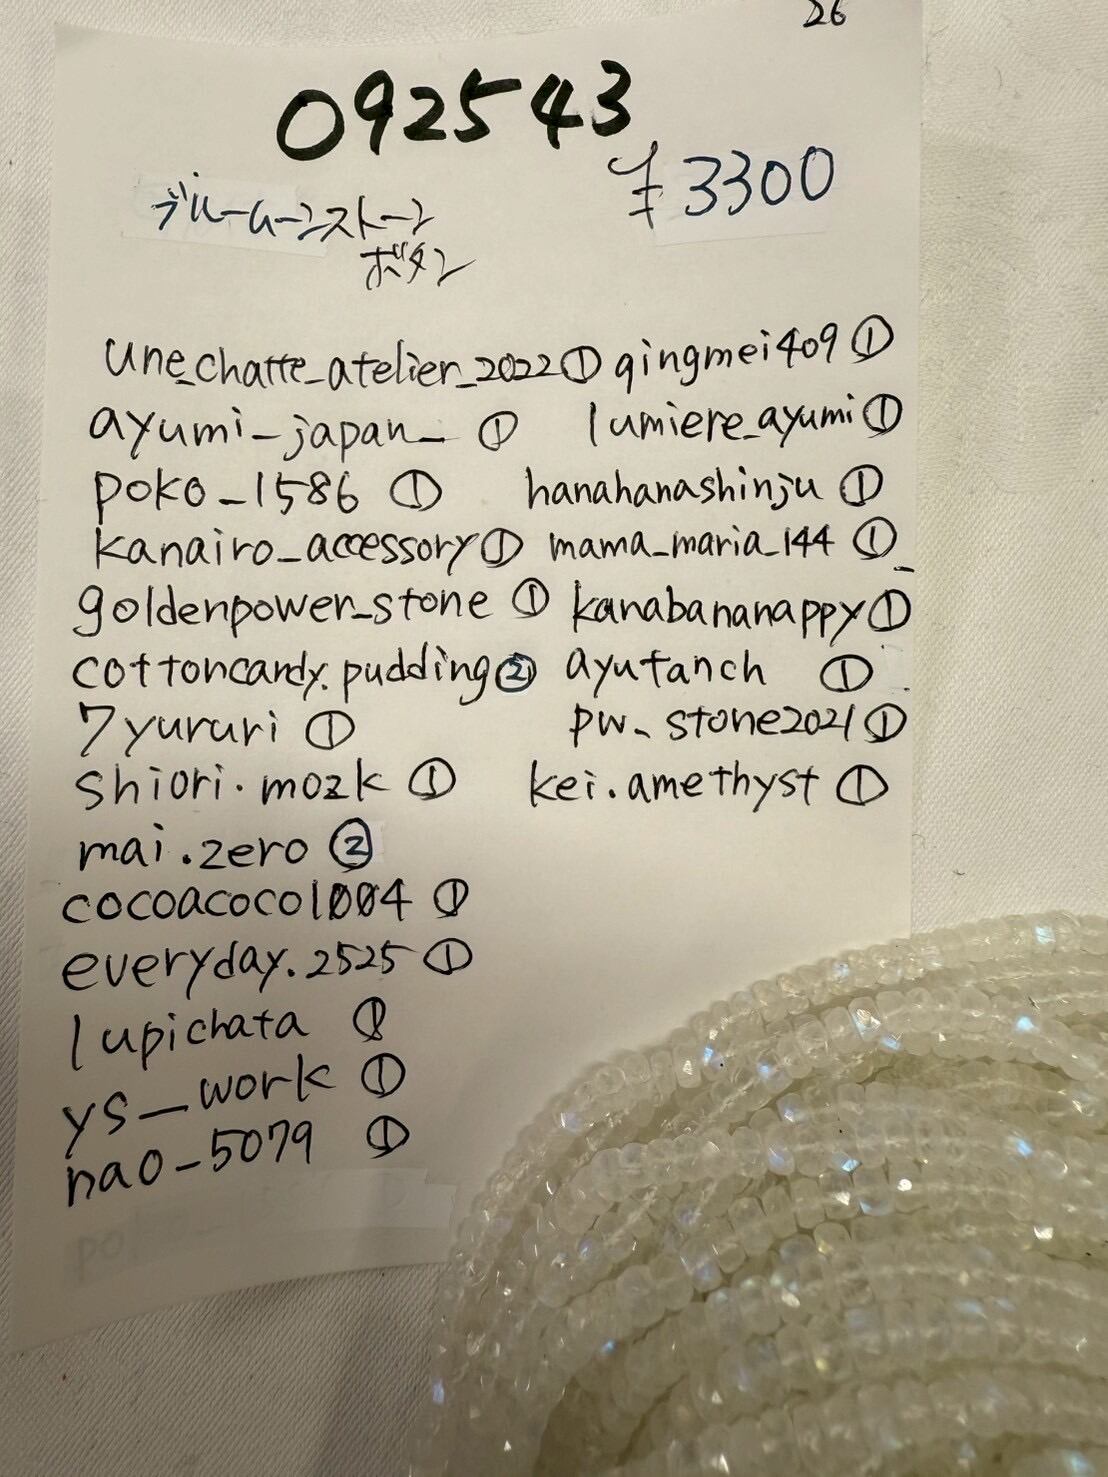 26
092543
¥3300
ブルームーンストーン
ボタン
une_chatte_atelier_2022① qingmei409①
ayumi_japan_ ① lumiere_ayumi①
poko_1586 ① hanahanashinju ①
kanairo_accessory① mama_maria_144 ①
goldenpower_stone ① kanabananappy①
cottoncandy.pudding② ayutanch ①
7yururi ① pw_stone2021①
shiori.mozk ① kei.amethyst ①
mai.zero ②
cocoacoco1004 ①
everyday.2525 ①
lupichata ①
ys_work ①
nao_5079 ①